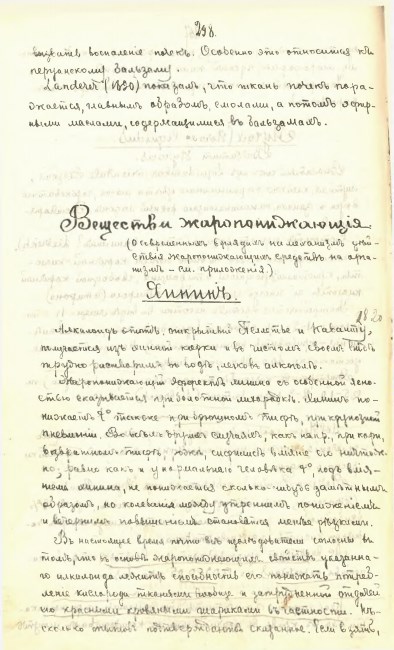 298.
вызвать воспаленіе почекъ. Особенно это относится къ
перуанскому бальзаму.
(1890) показалъ, что ткань почекъ пора-
жается, главнымъ образомъ, смолами, а потомъ эфир-
ными маслами, содержащимися въ бальзамахъ.
Вещества жаропонижающія.
(О современныхъ взглядахъ на механизмъ дѣй-
ствія жаропонижающихъ средствъ на орга-
низмъ – см. приложенія.)
Хининъ.
1820
Алкалоидъ этотъ, открытый Пелетье и Каванту,
получается изъ хинной корки и въ чистомъ своемъ видѣ
трудно растворимъ въ водѣ, легко въ алкоголѣ.
Жаропонижающій эффектъ хинина съ особенной ясно-
стью сказывается при болотной лихорадкѣ. Хининъ по-
нижаетъ t° также и при брюшномъ тифѣ, при крупозной
пневмоніи. Во всѣхъ другихъ случаяхъ, какъ напр., при кори,
возвратномъ тифѣ, рожѣ, вліяніе его ничтож-
но, равно какъ и у нормальнаго человѣка t°, подъ влія-
ніемъ хинина, не понижается сколько-нибудь замѣтнымъ
образомъ, но колебанія между утреннимъ пониженіемъ
и вечернимъ повышеніемъ становятся менѣе рѣзкими.
Въ настоящее время почти всѣ изслѣдователи согласны въ
томъ, что въ основѣ жаропонижающихъ свойствъ указанна-
го алкалоида лежитъ способность его понижать потреб-
леніе кислорода тканями вообще и затрудненной отдачей
его красными кровяными шариками въ частности. Нѣ-
сколько опытовъ подтверждаютъ сказанное. Если взять,